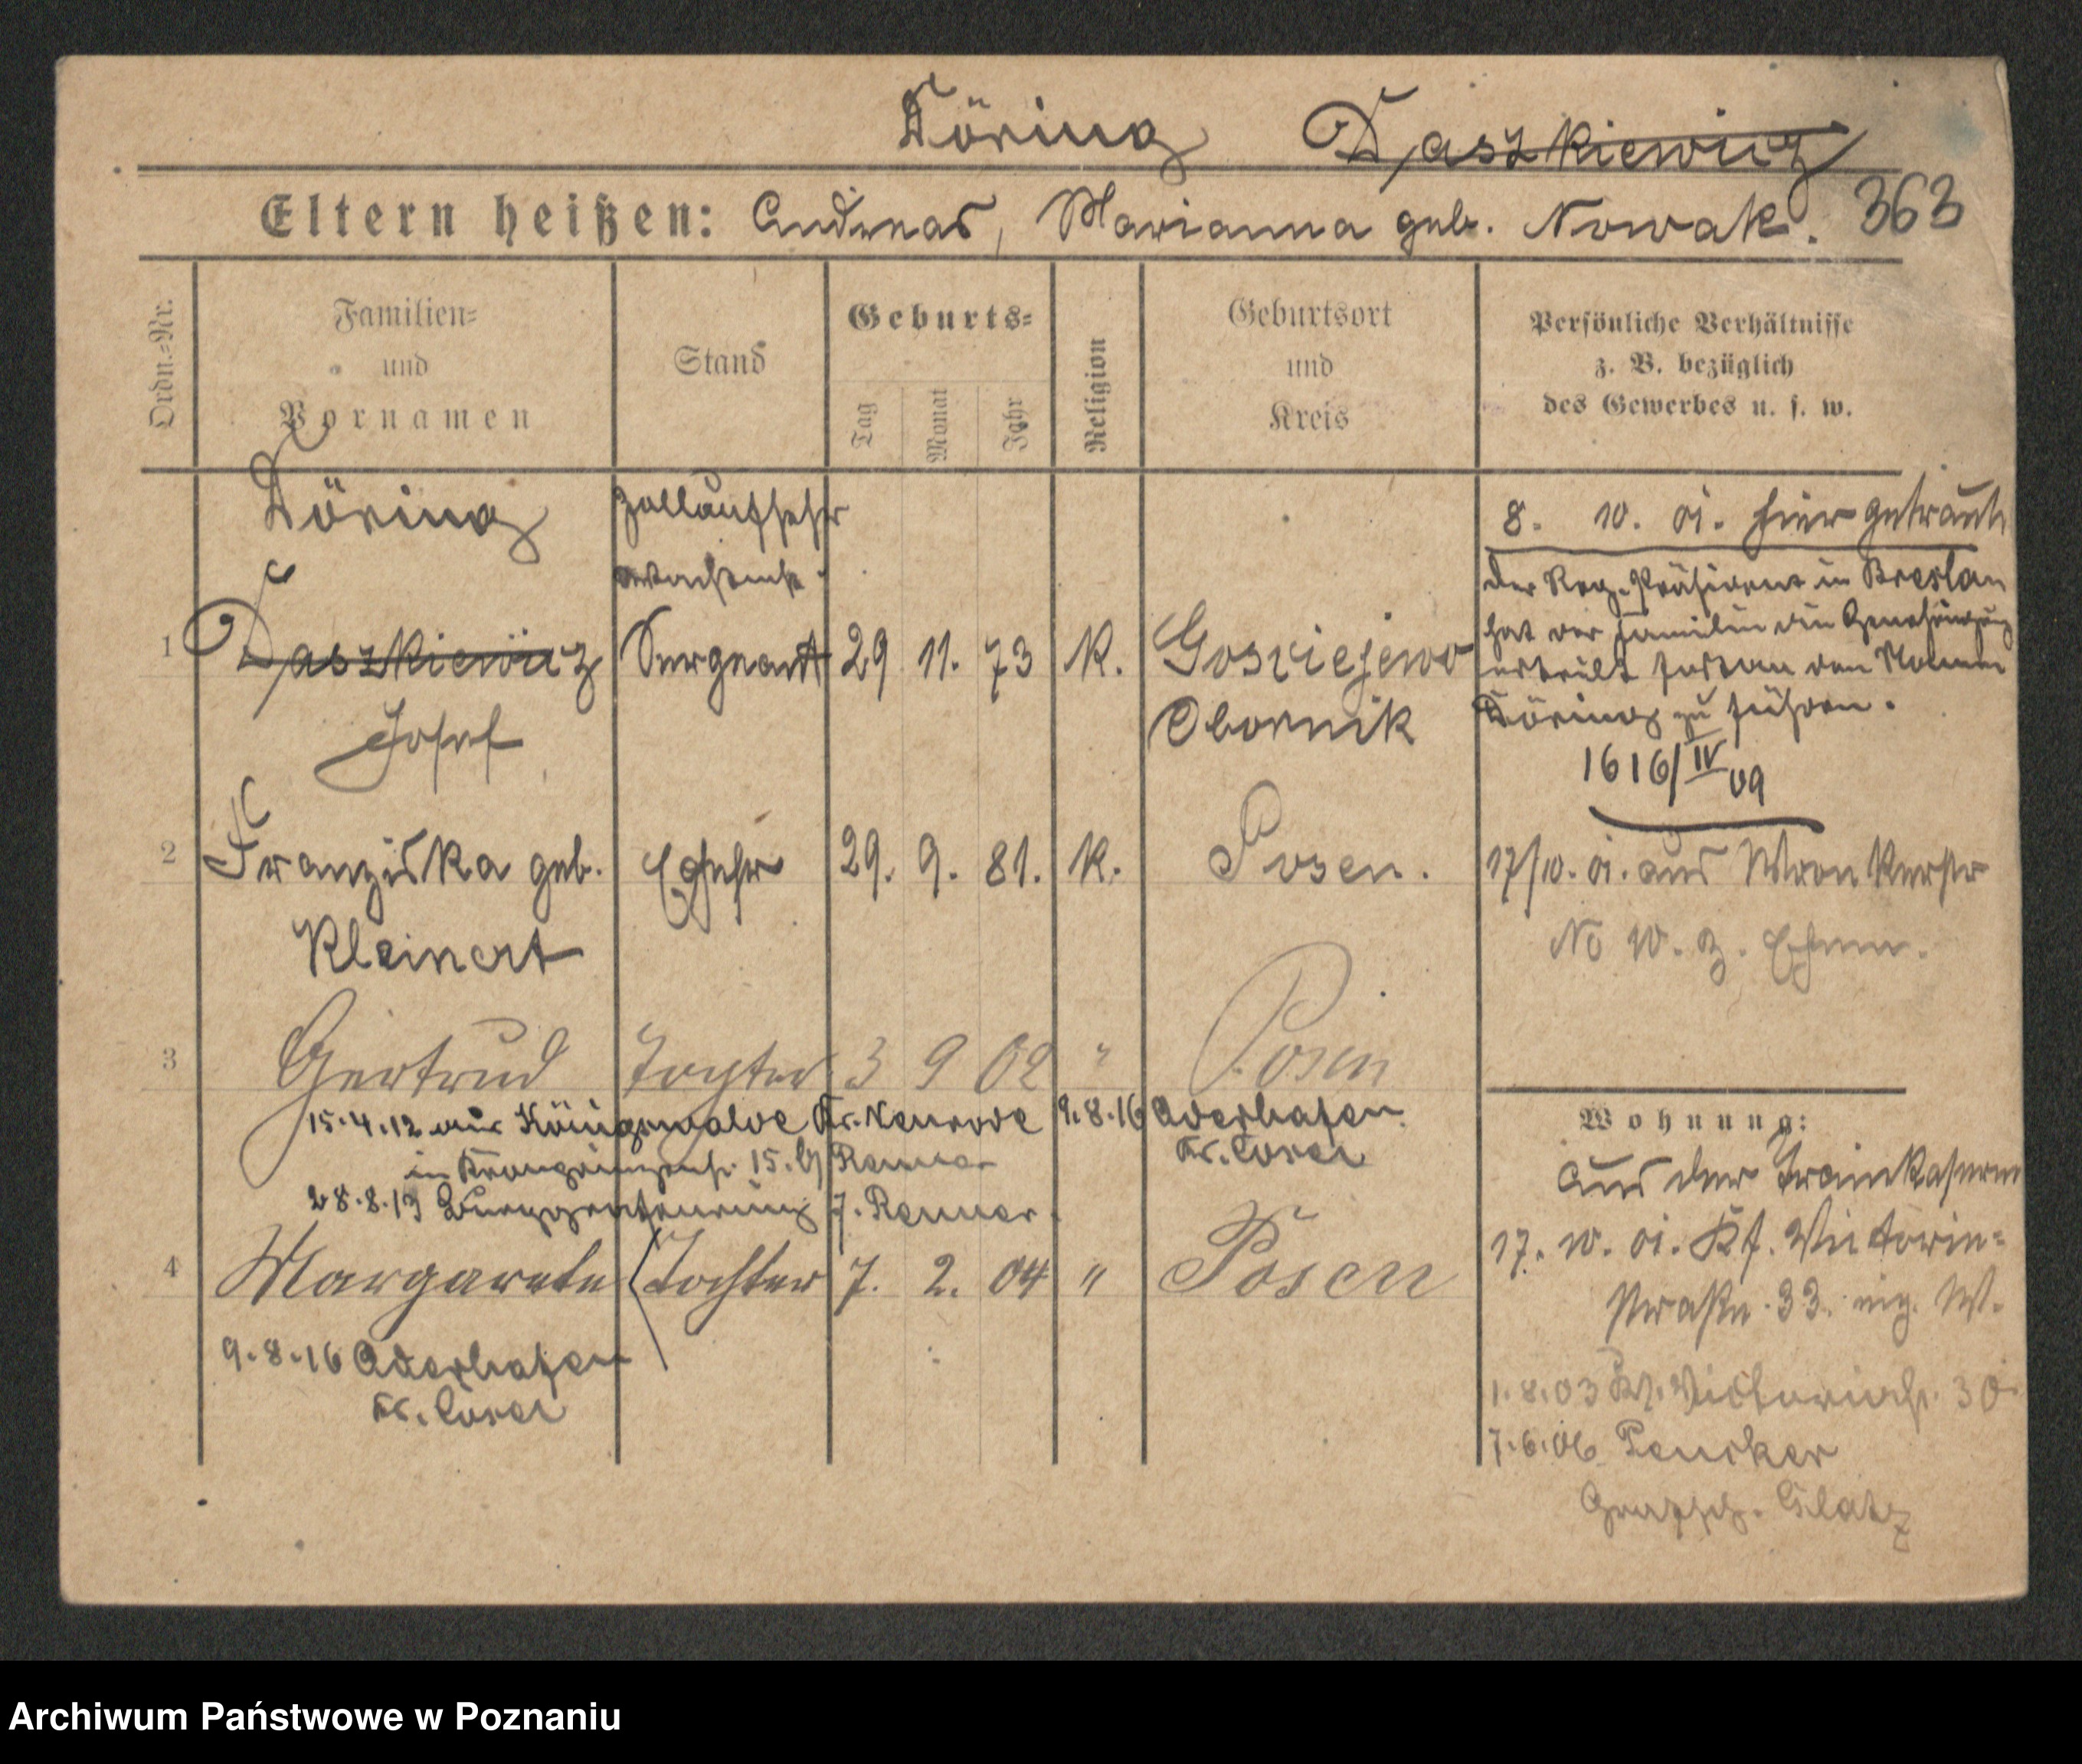 Döring Daszkiewicz
Eltern heißen: Andreas, Marianna geb. Nowak. 363
Ordn.-Nr.
Familien-
und
Vornamen
Stand
Geburts-
Tag
Monat
Jahr
Religion
Geburtsort
und
Kreis
Persönliche Verhältnisse
z. B. bezüglich
des Gewerbes u. s. w.
Döring Zollaufseher
1 Daszkiewicz Sergeant 29 11. 73 K. Gosciejewo
Josef Obornik
8. 10. 01. hier getraut
Der Reg. Präsident in Breslau
hat der Familie die Genehmigung
erteilt fortan den Namen
Döring zu führen.
1616/IV 09
2 Franziska geb. Ehefr 29. 9. 81. K. Posen.
Kleinert
17/10. 01. aus Wronkerstr
No 10. z. Ehem.
3 Gertrud Tochter 3 9 02 " Posen
15.4.12 aus Königswalde Kr. Neurode 9.8.16 Oderhafen
in Kronprinzenstr. 15. b/ Renner Kr. Cosel
28.8.13 7. Renner.
4 Margarete Tochter 7. 2. 04 " Posen
9.8.16 Oderhafen
Kr. Cosel
Wohnung:
Aus der Trainkaserne
17. 10. 01. Kf. Victoria-
straße 33. eig. W.
1.8.03 Victoriastr. 30
7.6.06 Peucker
Grafsch. Glatz
Archiwum Państwowe w Poznaniu